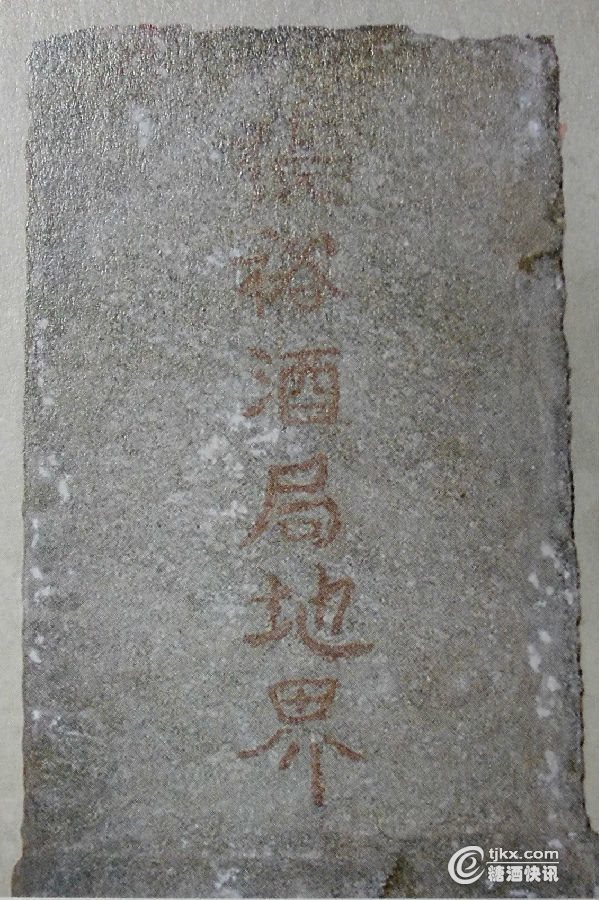 張裕酒局地界
tjkx.com
糖酒快讯